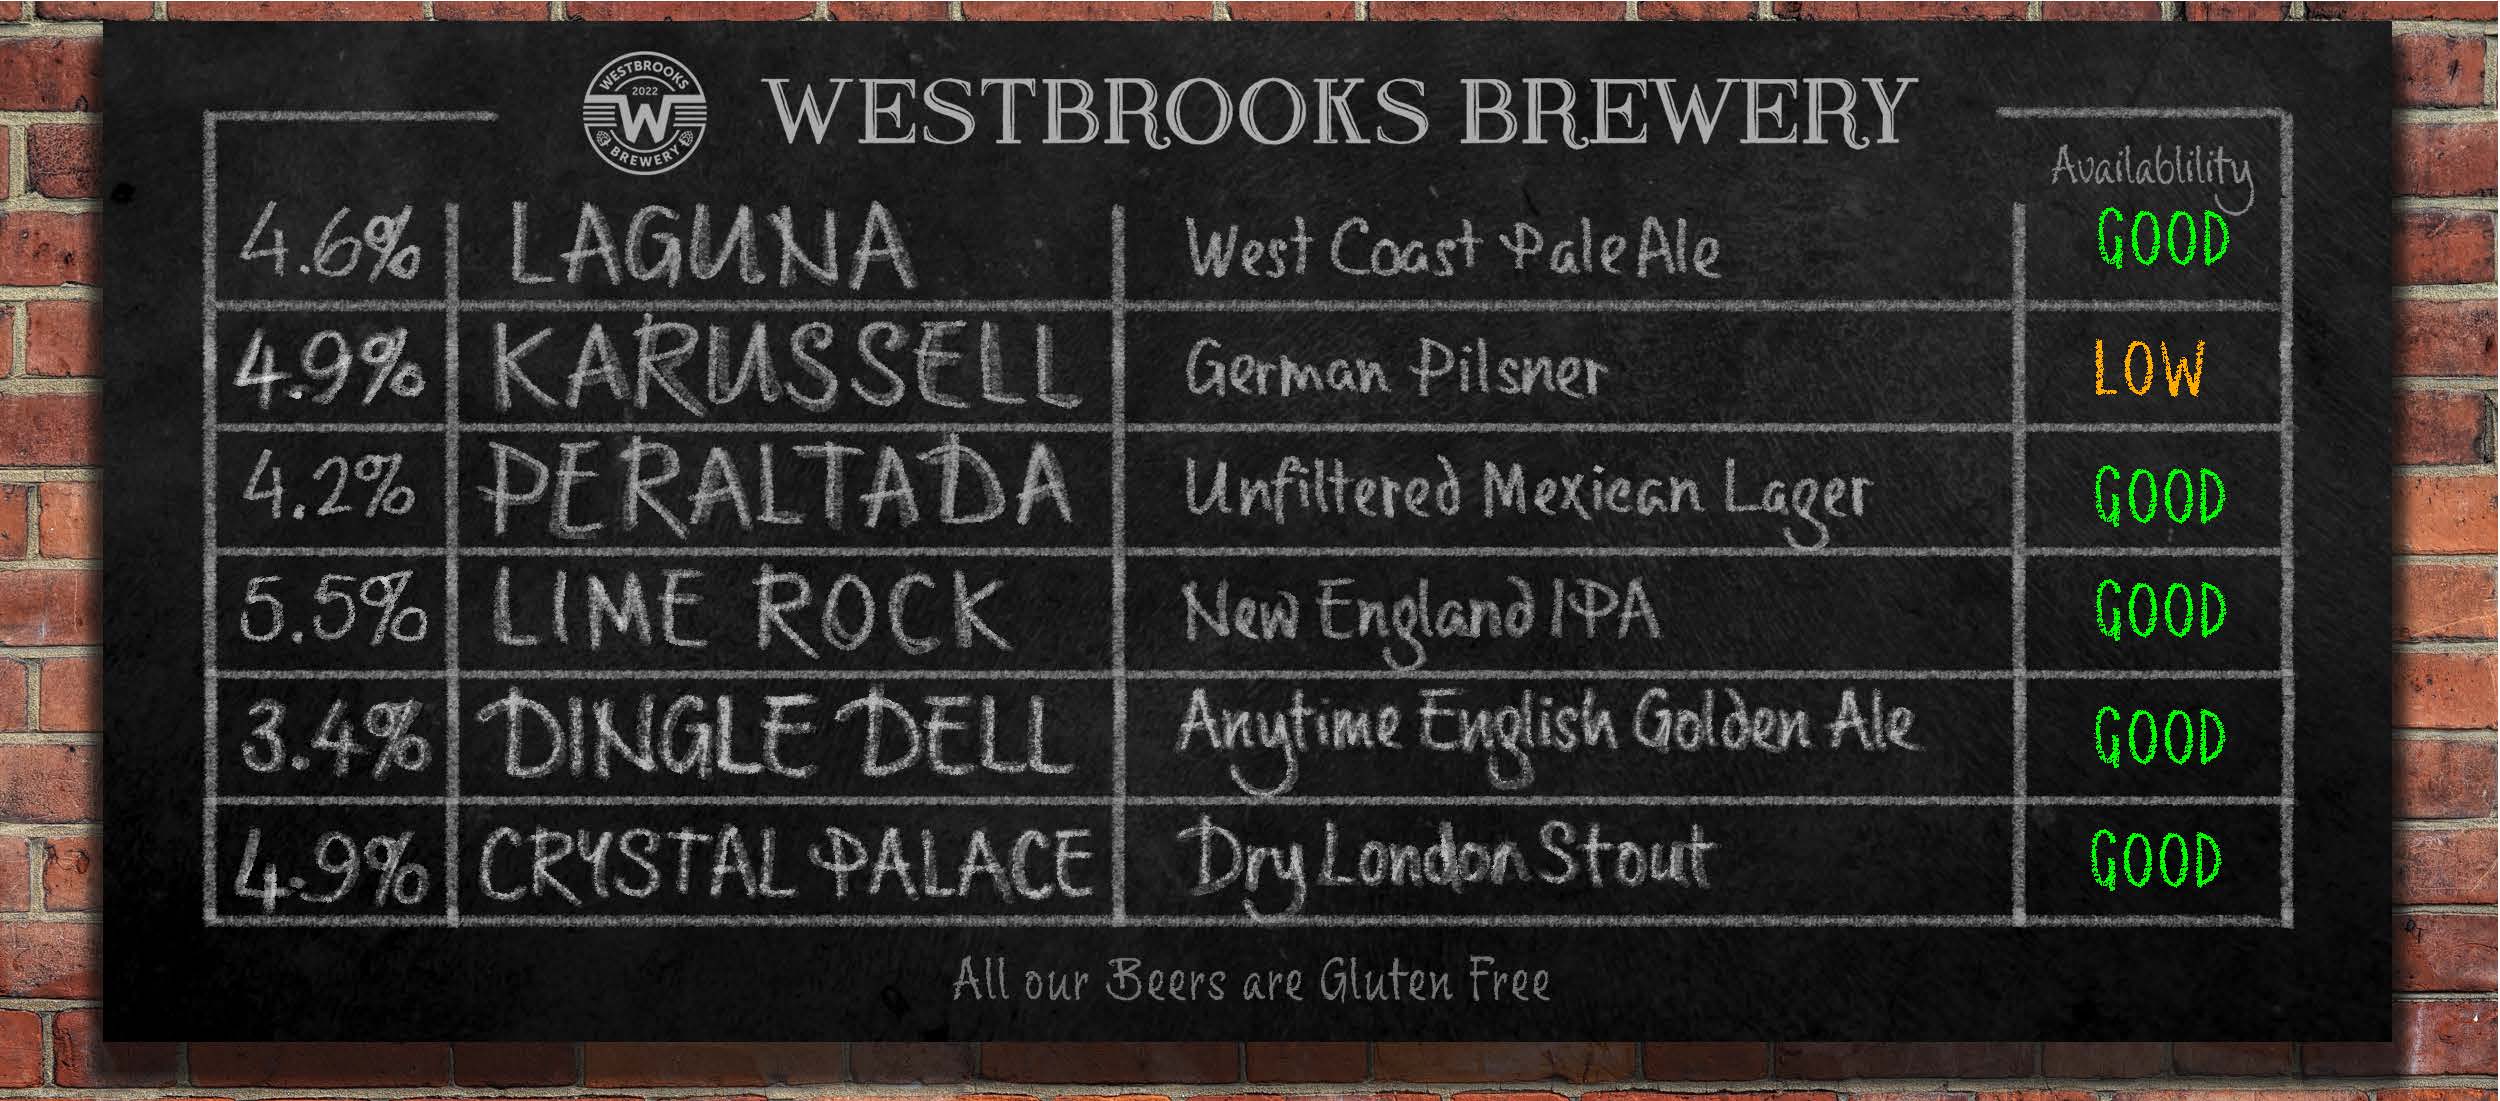 WESTBROOKS
2022
W
BREWERY
WESTBROOKS BREWERY
Availablility
4.6% LAGUNA West Coast Pale Ale GOOD
4.9% KARUSSELL German Pilsner LOW
4.2% PERALTADA Unfiltered Mexican Lager GOOD
5.5% LIME ROCK New England IPA GOOD
3.4% DINGLE DELL Anytime English Golden Ale GOOD
4.9% CRYSTAL PALACE Dry London Stout GOOD
All our Beers are Gluten Free